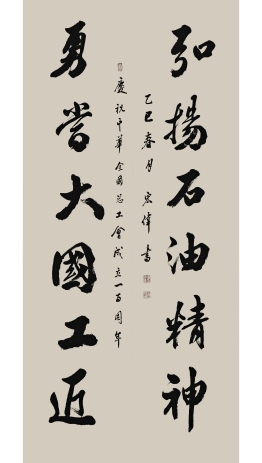 弘揚石油精神
乙巳春月宏偉書
慶祝中華全國总工會成立一百周年
勇當大國工匠